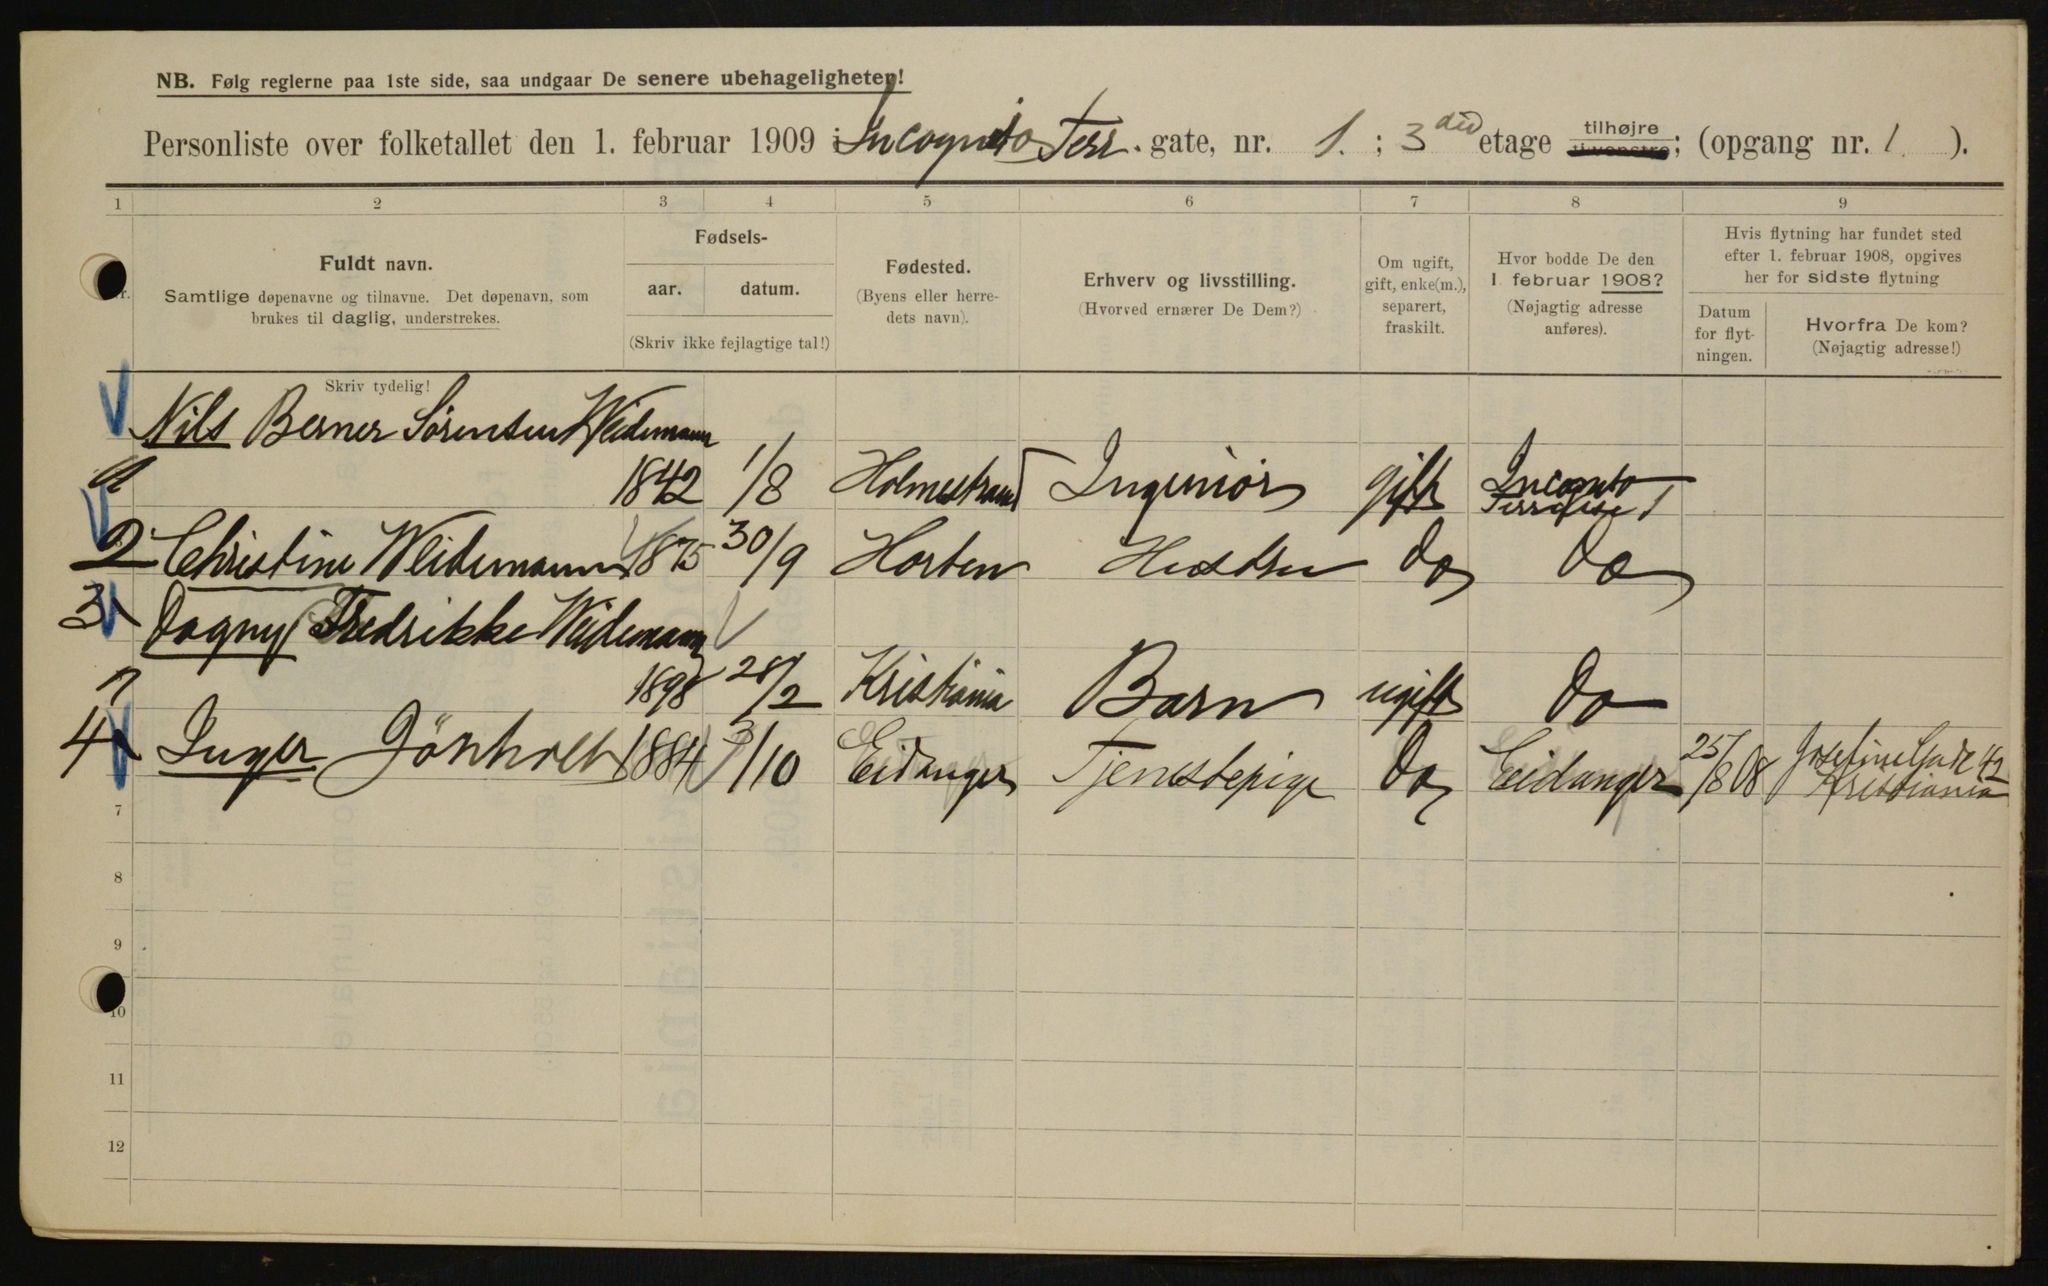 NB. Følg reglerne paa 1ste side, saa undgaar De senere ubehageligheter!
Personliste over folketallet den 1. februar 1909 i Incognito Terr. gate, nr. 1. ; 3 die etage tilhøjre tilvenstre; (opgang nr. 1. ).
1 2 3 4 5 6 7 8 9
Fuldt navn.
Samtlige døpenavne og tilnavne. Det døpenavn, som
brukes til daglig, understrekes.
Fødsels-
aar. datum.
(Skriv ikke fejlagtige tal!)
Fødested.
(Byens eller herre-
dets navn).
Erhverv og livsstilling.
(Hvorved ernærer De Dem?)
Om ugift,
gift, enke(m.),
separert,
fraskilt.
Hvor bodde De den
1 februar 1908?
(Nøjagtig adresse
anføres).
Hvis flytning har fundet sted
efter 1. februar 1908, opgives
her for sidste flytning
Datum
for flyt-
ningen.
Hvorfra De kom?
(Nøjagtig adresse!)
Skriv tydelig!
Nils Berner Sørensen Weidemann
1842 1/8 Holmestrand Ingeniør gift Incognito
Terrasse 1
2 Christine Weidemann 1875 30/9 Horten Hustru Do Do
3 Dagny Fredrikke Weidemann
1898 28/2 Kristiania Barn ugift Do
4 Inger Gönholt 1884 3/10 Eidanger Tjenestepige Do Eidanger 25/8 08 Josefine Gade 42
Kristiania
7
8
9
10
11
12